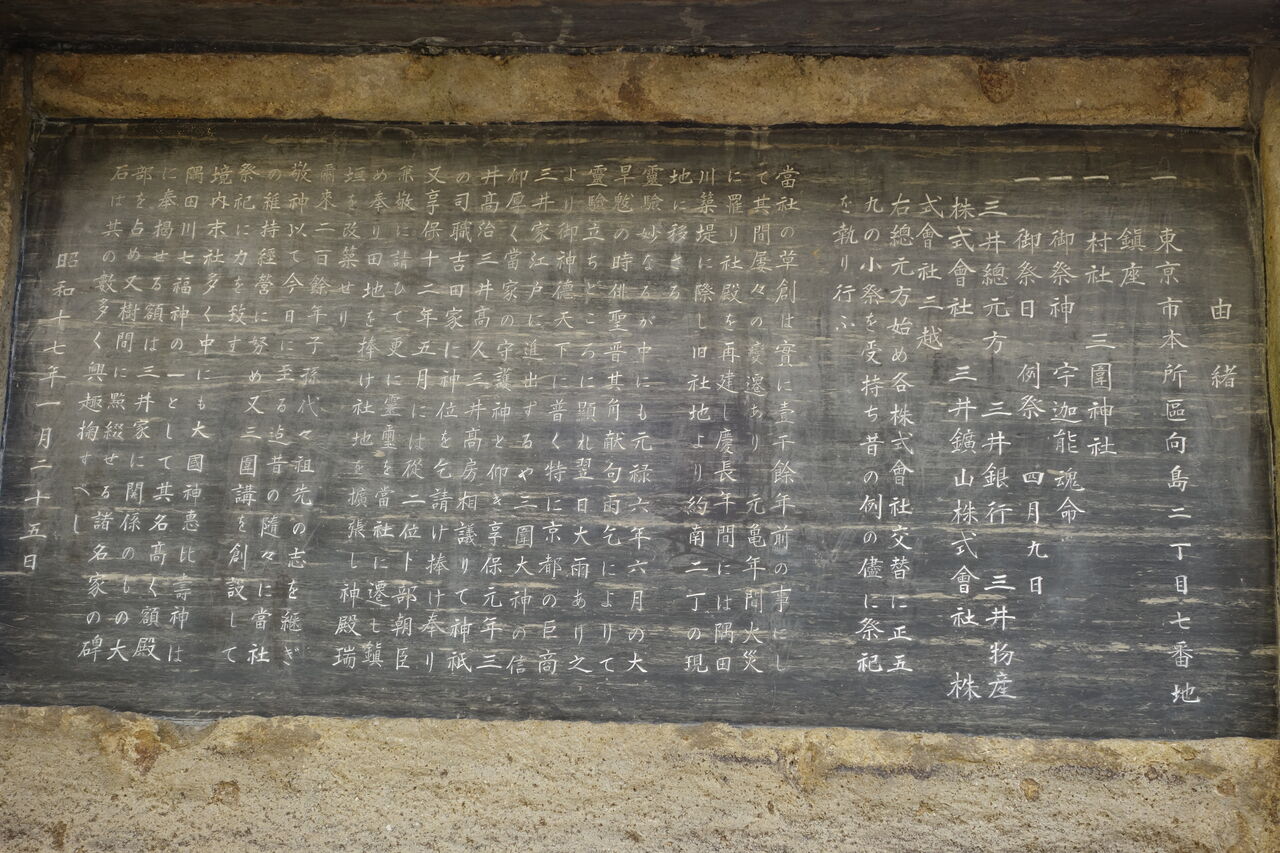 由緒
一 東京市本所區向島二丁目七番地
鎭座
一 村社 三圍神社
一 御祭神 宇迦能魂命
一 御祭日 例祭 四月九日
三井總元方 三井銀行 三井物産
株式會社 三井鑛山株式會社 株
式會社二越
右總元方始め各株式會社交替に正五
九の小祭を受持ち昔の例の儘に祭祀
を執り行ふ
當社の草創は實に壹千餘年前の事にし
て其間屢々の變遷あり 元亀年間火災
に罹り社殿を再建し慶長年間には隅田
川築堤に際し旧社地より約南二丁の現
地に移さる
靈驗妙なるが中にも元禄六年六月の大
旱魃の時俳聖晋其角献句雨乞によりて
靈驗立ちどころに顯れ翌日大雨あり之
より御神德天下に普く特に京都の巨商
三井家江戸に進出ずるや三圍大神の信
仰厚く當家の守護神と仰き享保元年三
井髙治三井髙久三井髙房相議りて神祇
の司職吉田家に神位を乞請け捧け奉り
又享保十二年五月には從二位卜部朝臣
兼敬に請ひて更に靈璽を當社に遷し鎭
め奉り田地を捧け社地を擴張し神殿瑞
垣を改築せり
爾來二百餘年子孫代々祖先の志を継ぎ
敬神以て今日に至る迠昔の隨々に當社
の維持經營に努め又三圍講を創設して
祭祀に力を致す
境内末社多く中にも大國神惠比壽神は
隅田川七福神の一として其名髙く額殿
に奉揭せる額は三井家に関係のもの大
部を占め又樹間に點綴せる諸名家の碑
石は其の數多く興趣掬すべし
昭和十七年一月二十五日